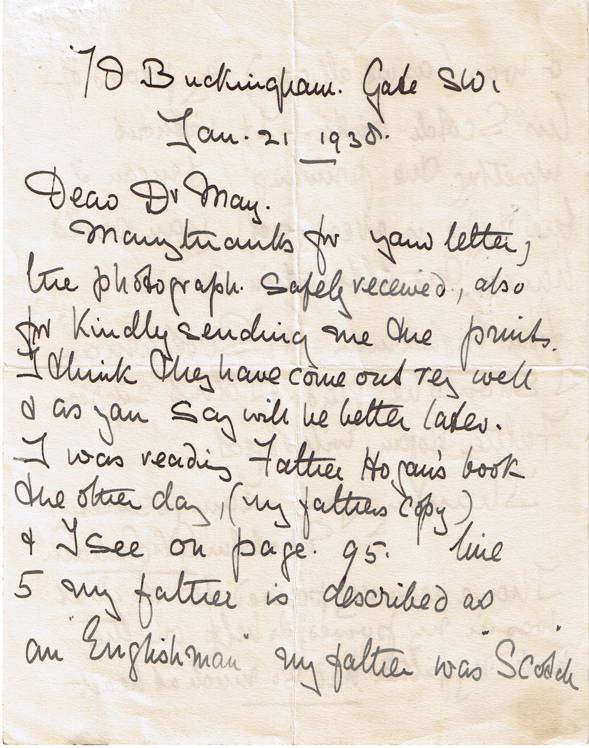 78 Buckingham. Gate SW1
Jan. 21 1938.
Dear Dr May.
Many thanks for your letter,
the photograph. safely received, also
for kindly sending me the prints.
I think they have come out very well
& as you say will be better later.
I was reading Father Hogan's book
the other day, (my fathers copy)
& I see on page. 95. line
5 my father is described as
an "Englishman" my father was "Scotch